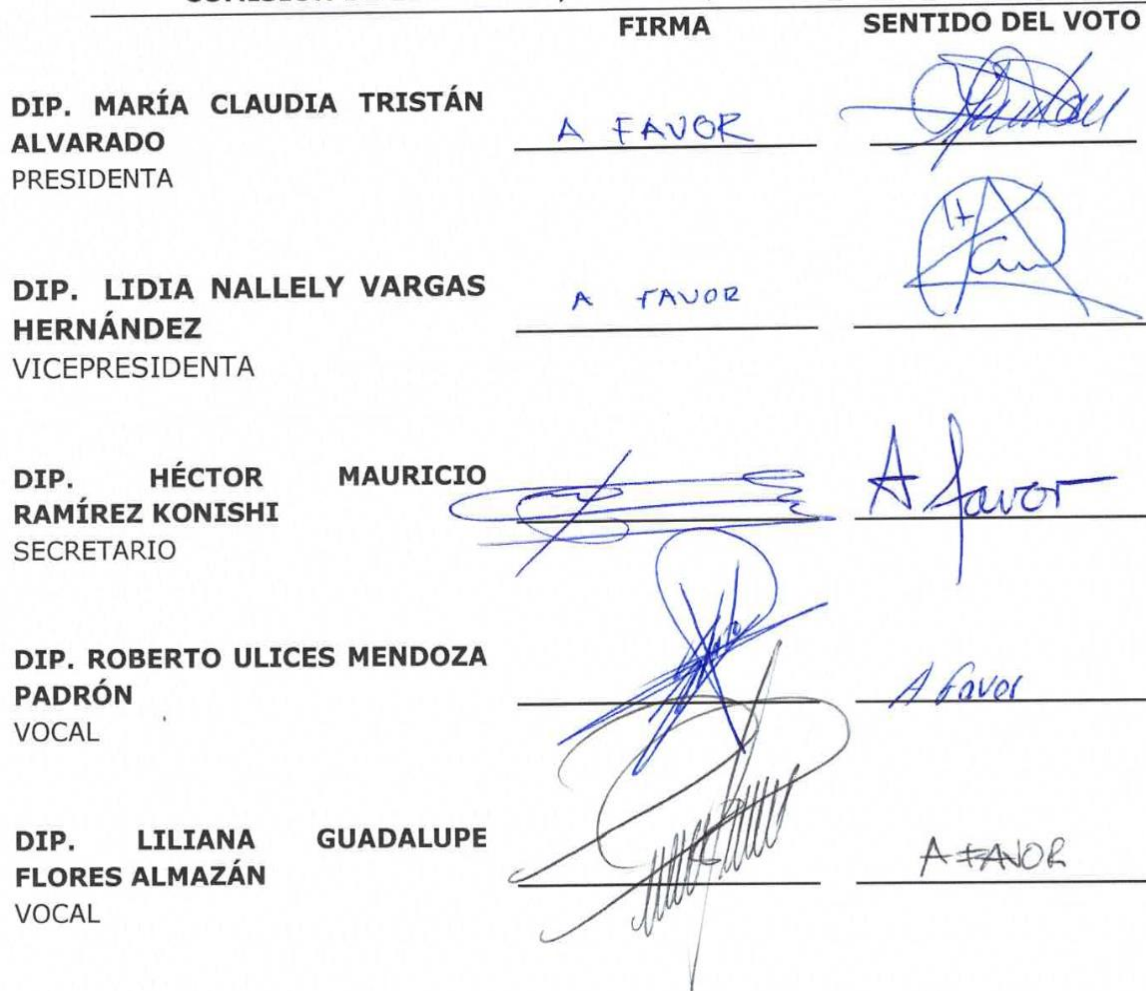 FIRMA SENTIDO DEL VOTO
DIP. MARÍA CLAUDIA TRISTÁN
ALVARADO
PRESIDENTA
A FAVOR
DIP. LIDIA NALLELY VARGAS
HERNÁNDEZ
VICEPRESIDENTA
A FAVOR
DIP. HÉCTOR MAURICIO
RAMÍREZ KONISHI
SECRETARIO
A favor
DIP. ROBERTO ULICES MENDOZA
PADRÓN
VOCAL
A favor
DIP. LILIANA GUADALUPE
FLORES ALMAZÁN
VOCAL
A FAVOR